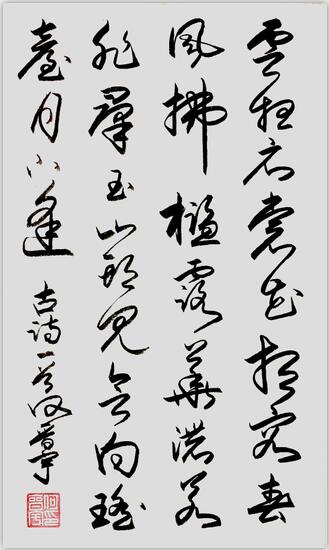 雲想衣裳花想容春
風拂檻露華濃若
非羣玉山頭見會向瑤
臺月下逢
古詩一首